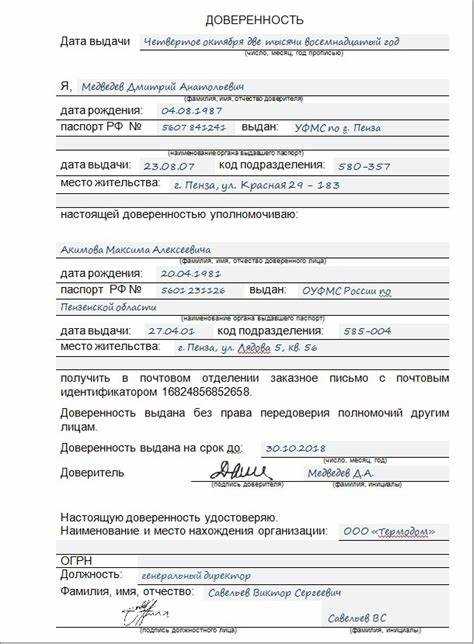 ДОВЕРЕННОСТЬ
Дата выдачи Четвертое октября две тысячи восемнадцатый год
(число, месяц, год прописью)
Я, Медведев Дмитрий Анатольевич
(фамилия, имя, отчество доверителя)
дата рождения: 04.08.1987
паспорт РФ № 5607 841241 выдан: УФМС по г. Пенза
(наименование органа выдавшего паспорт)
дата выдачи: 23.08.07 код подразделения: 580-357
место жительства: г. Пенза, ул. Красная 29 - 183
настоящей доверенностью уполномочиваю:
Акимова Максима Алексеевича
(фамилия, имя, отчество доверенного лица)
дата рождения: 20.04.1981
паспорт РФ № 5601 231126 выдан: ОУФМС России по
Пензенской области
(наименование органа выдавшего паспорт)
дата выдачи: 27.04.01 код подразделения: 585-004
место жительства: г. Пенза, ул. Лядова 5, кв 56
получить в почтовом отделении заказное письмо с почтовым
идентификатором 16824856852658.
Доверенность выдана без права передоверия полномочий другим
лицам.
Доверенность выдана на срок до: 30.10.2018
(число, месяц, год)
Доверитель Медведев Д.А.
(подпись доверителя) (фамилия, инициалы)
Настоящую доверенность удостоверяю.
Наименование и место нахождения организации: ООО «Термодом»
ОГРН
Должность: генеральный директор
Фамилия, имя, отчество: Савельев Виктор Сергеевич
Савельев ВС
(подпись должностного лица) (фамилия, инициалы)